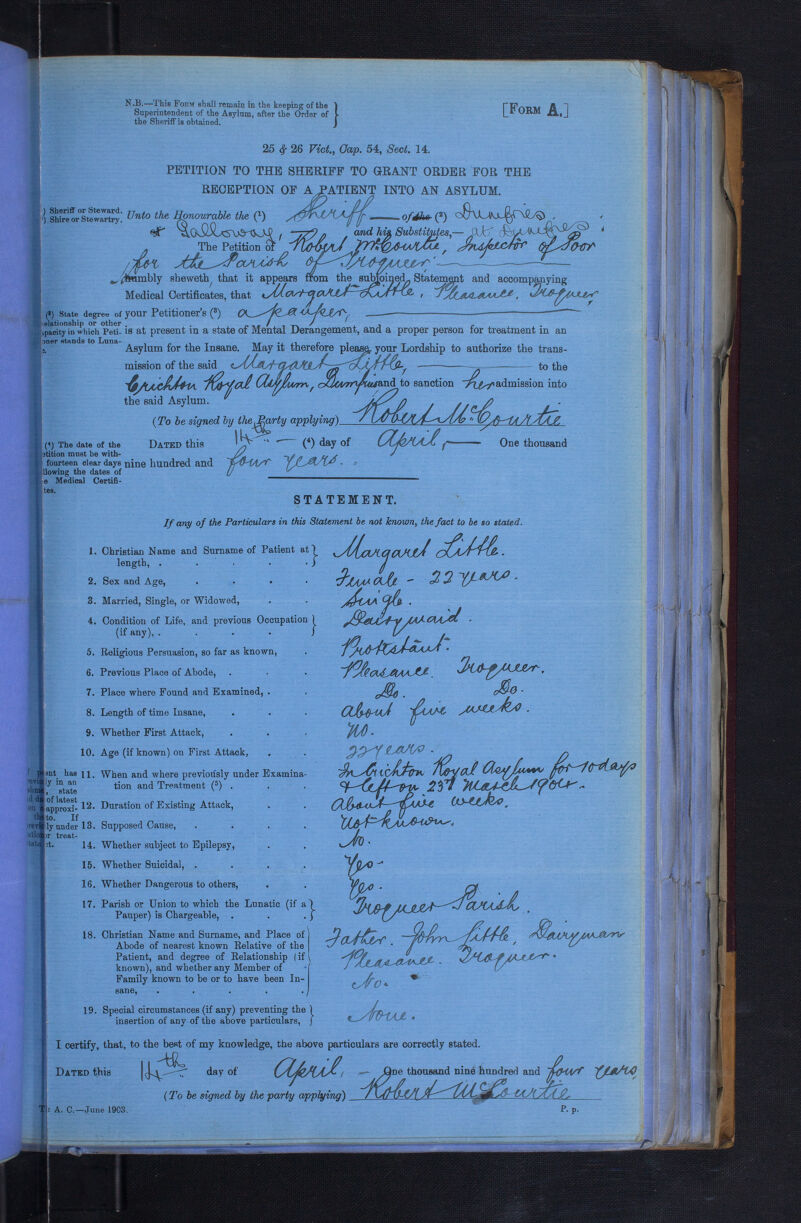 N.B.—This Form shall remain in the keeping of the
Superintendent of the Asylum, after the Order of
the Sheriff is obtained.
[Form A.]
25 & 26 Vict., Cap. 54, Sect. 14.
PETITION TO THE SHERIFF TO GRANT ORDER FOR THE
RECEPTION OF A PATIENT INTO AN ASYLUM.
) Sheriff or Steward.
) Shire or Stewartry.
Unto the Honourable the (1) Sheriff of the (2) Dumfries
& Galloway, and his Substitutes,— at Dumfries
The Petition of Robert McCourtie, Inspector of Poor
for the Parish of Troqueer
Humbly sheweth, that it appears from the subjoined Statement and accompanying
Medical Certificates, that Margaret Little, Pleasance, Troqueer
(3) State degree of
relationship or other
capacity in which Peti-
tioner stands to Luna-
your Petitioner's (3) a pauper,
is at present in a state of Mental Derangement, and a proper person for treatment in an
Asylum for the Insane. May it therefore please your Lordship to authorize the trans-
mission of the said Margaret Little, to the
Crichton Royal Asylum, Dumfries and to sanction her admission into
the said Asylum.
(To be signed by the Party applying) Robert McCourtie
(4) The date of the
petition must be with-
fourteen clear days
following the dates of
e Medical Certifi-
tes.
Dated this 14th (4) day of April, One thousand
nine hundred and four years.
STATEMENT.
If any of the Particulars in this Statement be not known, the fact to be so stated.
1. Christian Name and Surname of Patient at length, . Margaret Little.
2. Sex and Age, Female - 22 years.
3. Married, Single, or Widowed, Single.
4. Condition of Life, and previous Occupation (if any), . Dairymaid.
5. Religious Persuasion, so far as known, Protestant.
6. Previous Place of Abode, Pleasance. Troqueer.
7. Place where Found and Examined, Do. Do.
8. Length of time Insane, About five weeks.
9. Whether First Attack, No.
10. Age (if known) on First Attack, 22 years.
11. When and where previously under Examina-
tion and Treatment (5) In Crichton Royal Asylum for 10 days
& left on 23rd March 1904.
12. Duration of Existing Attack, About five weeks.
13. Supposed Cause, Not known.
14. Whether subject to Epilepsy, No.
15. Whether Suicidal, Yes.
16. Whether Dangerous to others, Yes.
17. Parish or Union to which the Lunatic (if a
Pauper) is Chargeable, Troqueer Parish.
18. Christian Name and Surname, and Place of
Abode of nearest known Relative of the
Patient, and degree of Relationship (if
known), and whether any Member of
Family known to be or to have been In-
sane, Father. John Little, Dairyman
Pleasance. Troqueer.
No.
19. Special circumstances (if any) preventing the
insertion of any of the above particulars, None.
I certify, that, to the best of my knowledge, the above particulars are correctly stated.
Dated this 14th day of April, One thousand nine hundred and four years
(To be signed by the party applying) Robert McCourtie
A. C.—June 1903.
P. p.